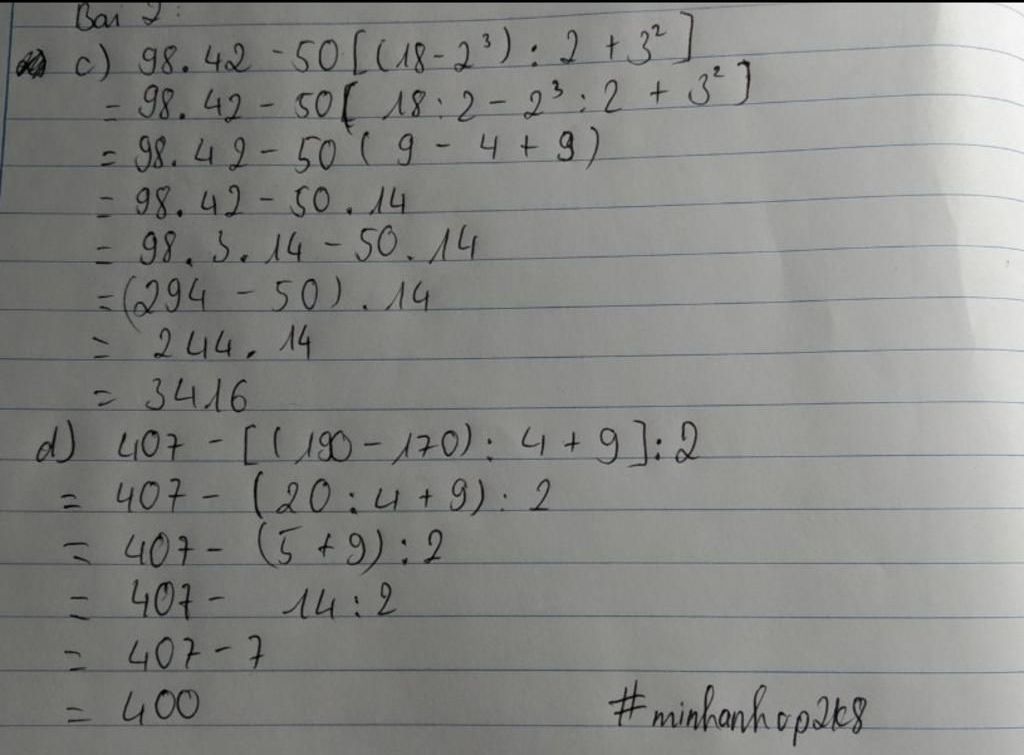 Bài 2:
c) 98.42 - 50[(18 - 2³) : 2 + 3²]
= 98.42 - 50[ 18 : 2 - 2³ : 2 + 3²]
= 98.42 - 50 ( 9 - 4 + 9)
= 98.42 - 50.14
= 98.3.14 - 50.14
= (294 - 50).14
= 244.14
= 3416
d) 407 - [(190 - 170) : 4 + 9] : 2
= 407 - (20 : 4 + 9) : 2
= 407 - (5 + 9) : 2
= 407 - 14 : 2
= 407 - 7
= 400
#minhanhcp2k8